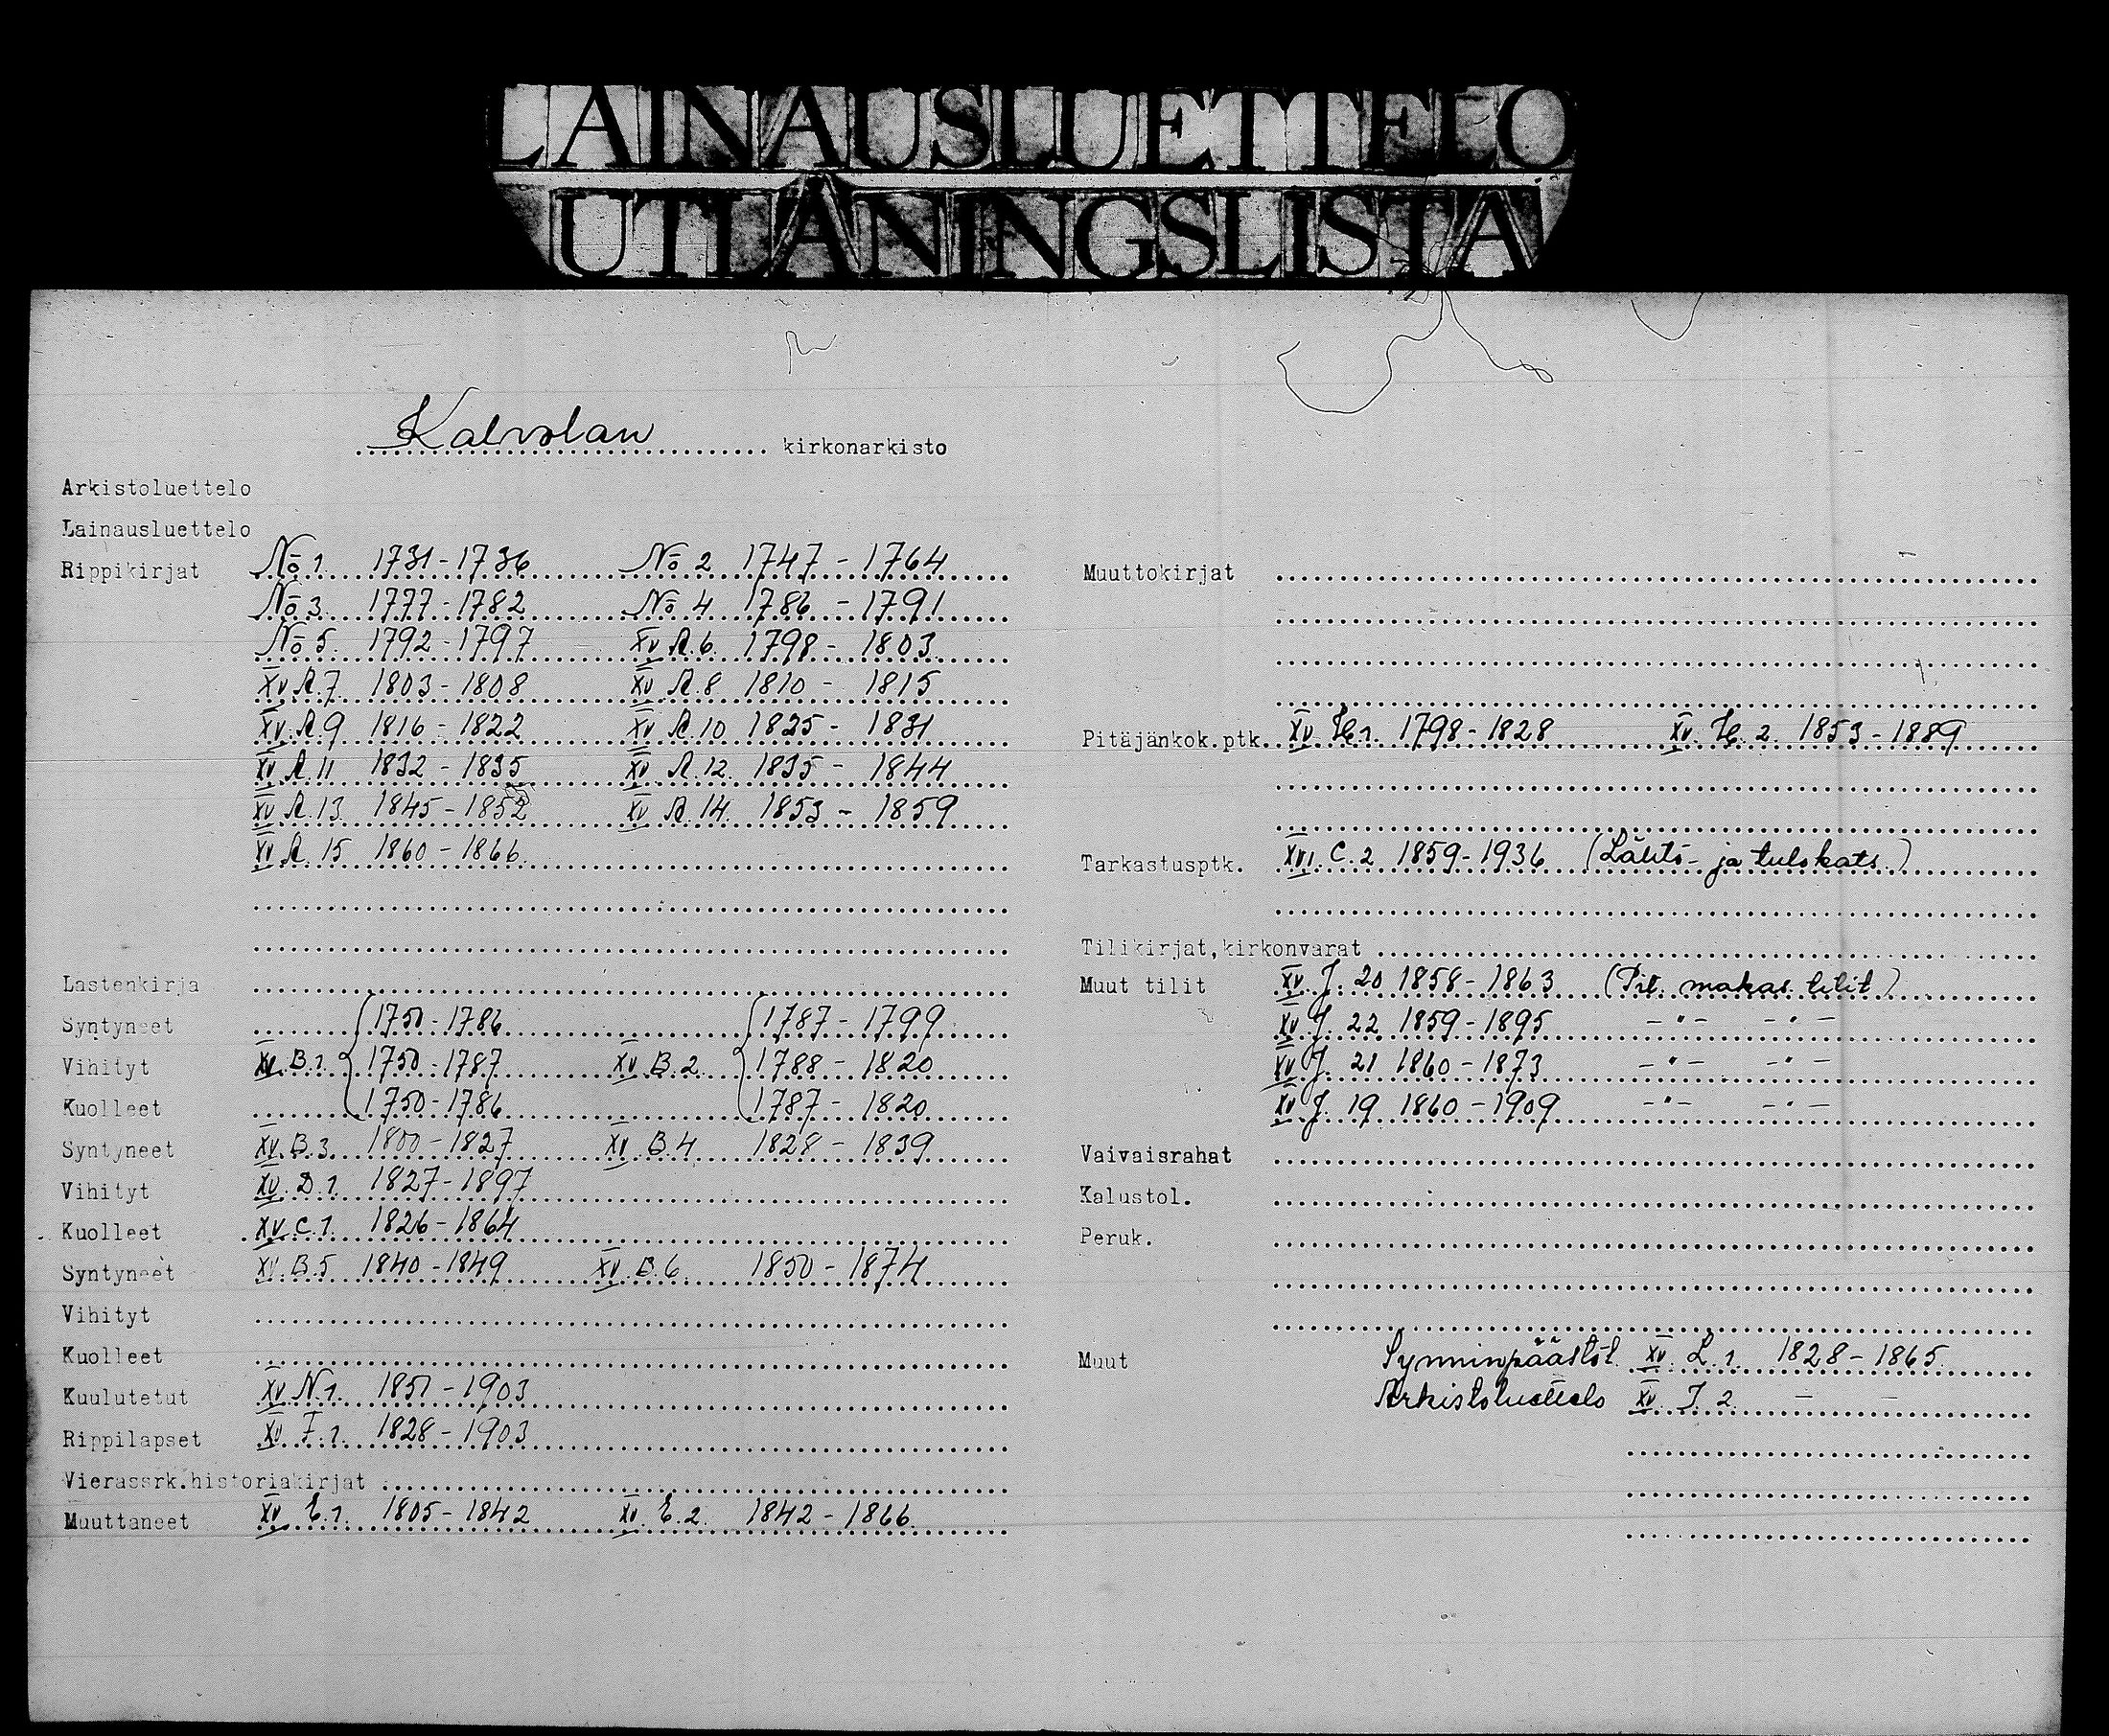 LAINAUSLUETTELO
UTLÅNINGSLISTA
Kalvolan kirkonarkisto
Arkistoluettelo
Lainausluettelo
Rippikirjat No 1. 1731-1736 No 2 1747-1764
No 3. 1777-1782 No 4 1786-1791
No 5. 1792-1797 XV A.6. 1798-1803
XV A.7. 1803-1808 XV A.8 1810-1815
XV A.9 1816-1822 XV A.10 1825-1831
XV A.11 1832-1835 XV A.12. 1835-1844
XV A.13 1845-1852 XV A.14. 1853-1859
XV A.15 1860-1866
Lastenkirja
Syntyneet 1750-1786 1787-1799
Vihityt XV.B.1. 1750-1787 XV B.2. 1788-1820
Kuolleet 1750-1786 1787-1820
Syntyneet XV.B.3. 1800-1827 XV.B.4 1828-1839
Vihityt XV.D.1. 1827-1897
Kuolleet XV.C.1. 1826-1864
Syntyneet XV.B.5 1840-1849 XV.B.6. 1850-1874
Vihityt
Kuolleet
Kuulutetut XV N.1. 1851-1903
Rippilapset XV F.1. 1828-1903
Vierassrk.historiakirjat
Muuttaneet XV E.1. 1805-1842 XV.E.2. 1842-1866.
Muuttokirjat
Pitäjänkok.ptk. XV 1798-1828 XV 2. 1853-1889
Tarkastusptk. XVI.C.2 1859-1936 (Lähtö- ja tulokats.)
Tilikirjat,kirkonvarat
Muut tilit XV J. 20 1858-1863 (Pit. makas. tilit)
XV J. 22 1859-1895 -"- -"-
XV J. 21 1860-1873 -"- -"-
XV J. 19 1860-1909 -"- -"-
Vaivaisrahat
Kalustol.
Peruk.
Muut Synninpäästöt. XV. L.1. 1828-1865.
Arkistoluettelo XV. I.2. - -